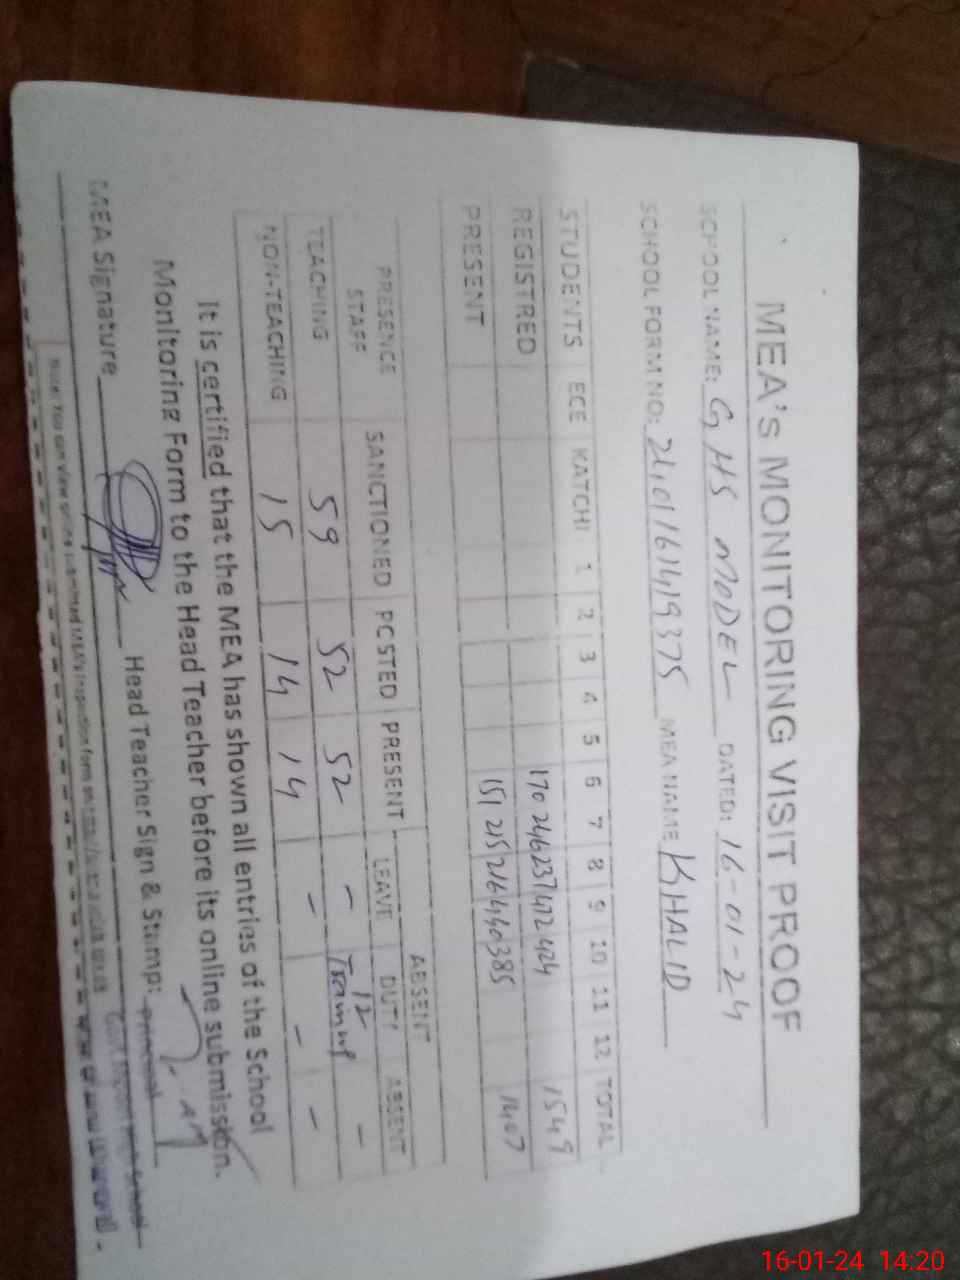 MEA's MONITORING VISIT PROOF
SCHOOL NAME: GHS MODEL DATED: 16-01-24
SCHOOL FORM NO: MEA NAME KHALID
STUDENTS ECE KATCHI 1 2 3 4 5 6 7 8 9 10 11 12 TOTAL
REGISTRED 170 246 237 472 424 1549
PRESENT 151 215 216 440 385 1407
PRESENCE STAFF SANCTIONED POSTED PRESENT ABSENT
LEAVE DUTY ABSENT
TEACHING 59 52 52 - 12 -
NON-TEACHING 15 14 14 - - -
It is certified that the MEA has shown all entries of the School
Monitoring Form to the Head Teacher before its online submission.
MEA Signature Head Teacher Sign & Stamp: Principal
Note: You can view
16-01-24 14:20